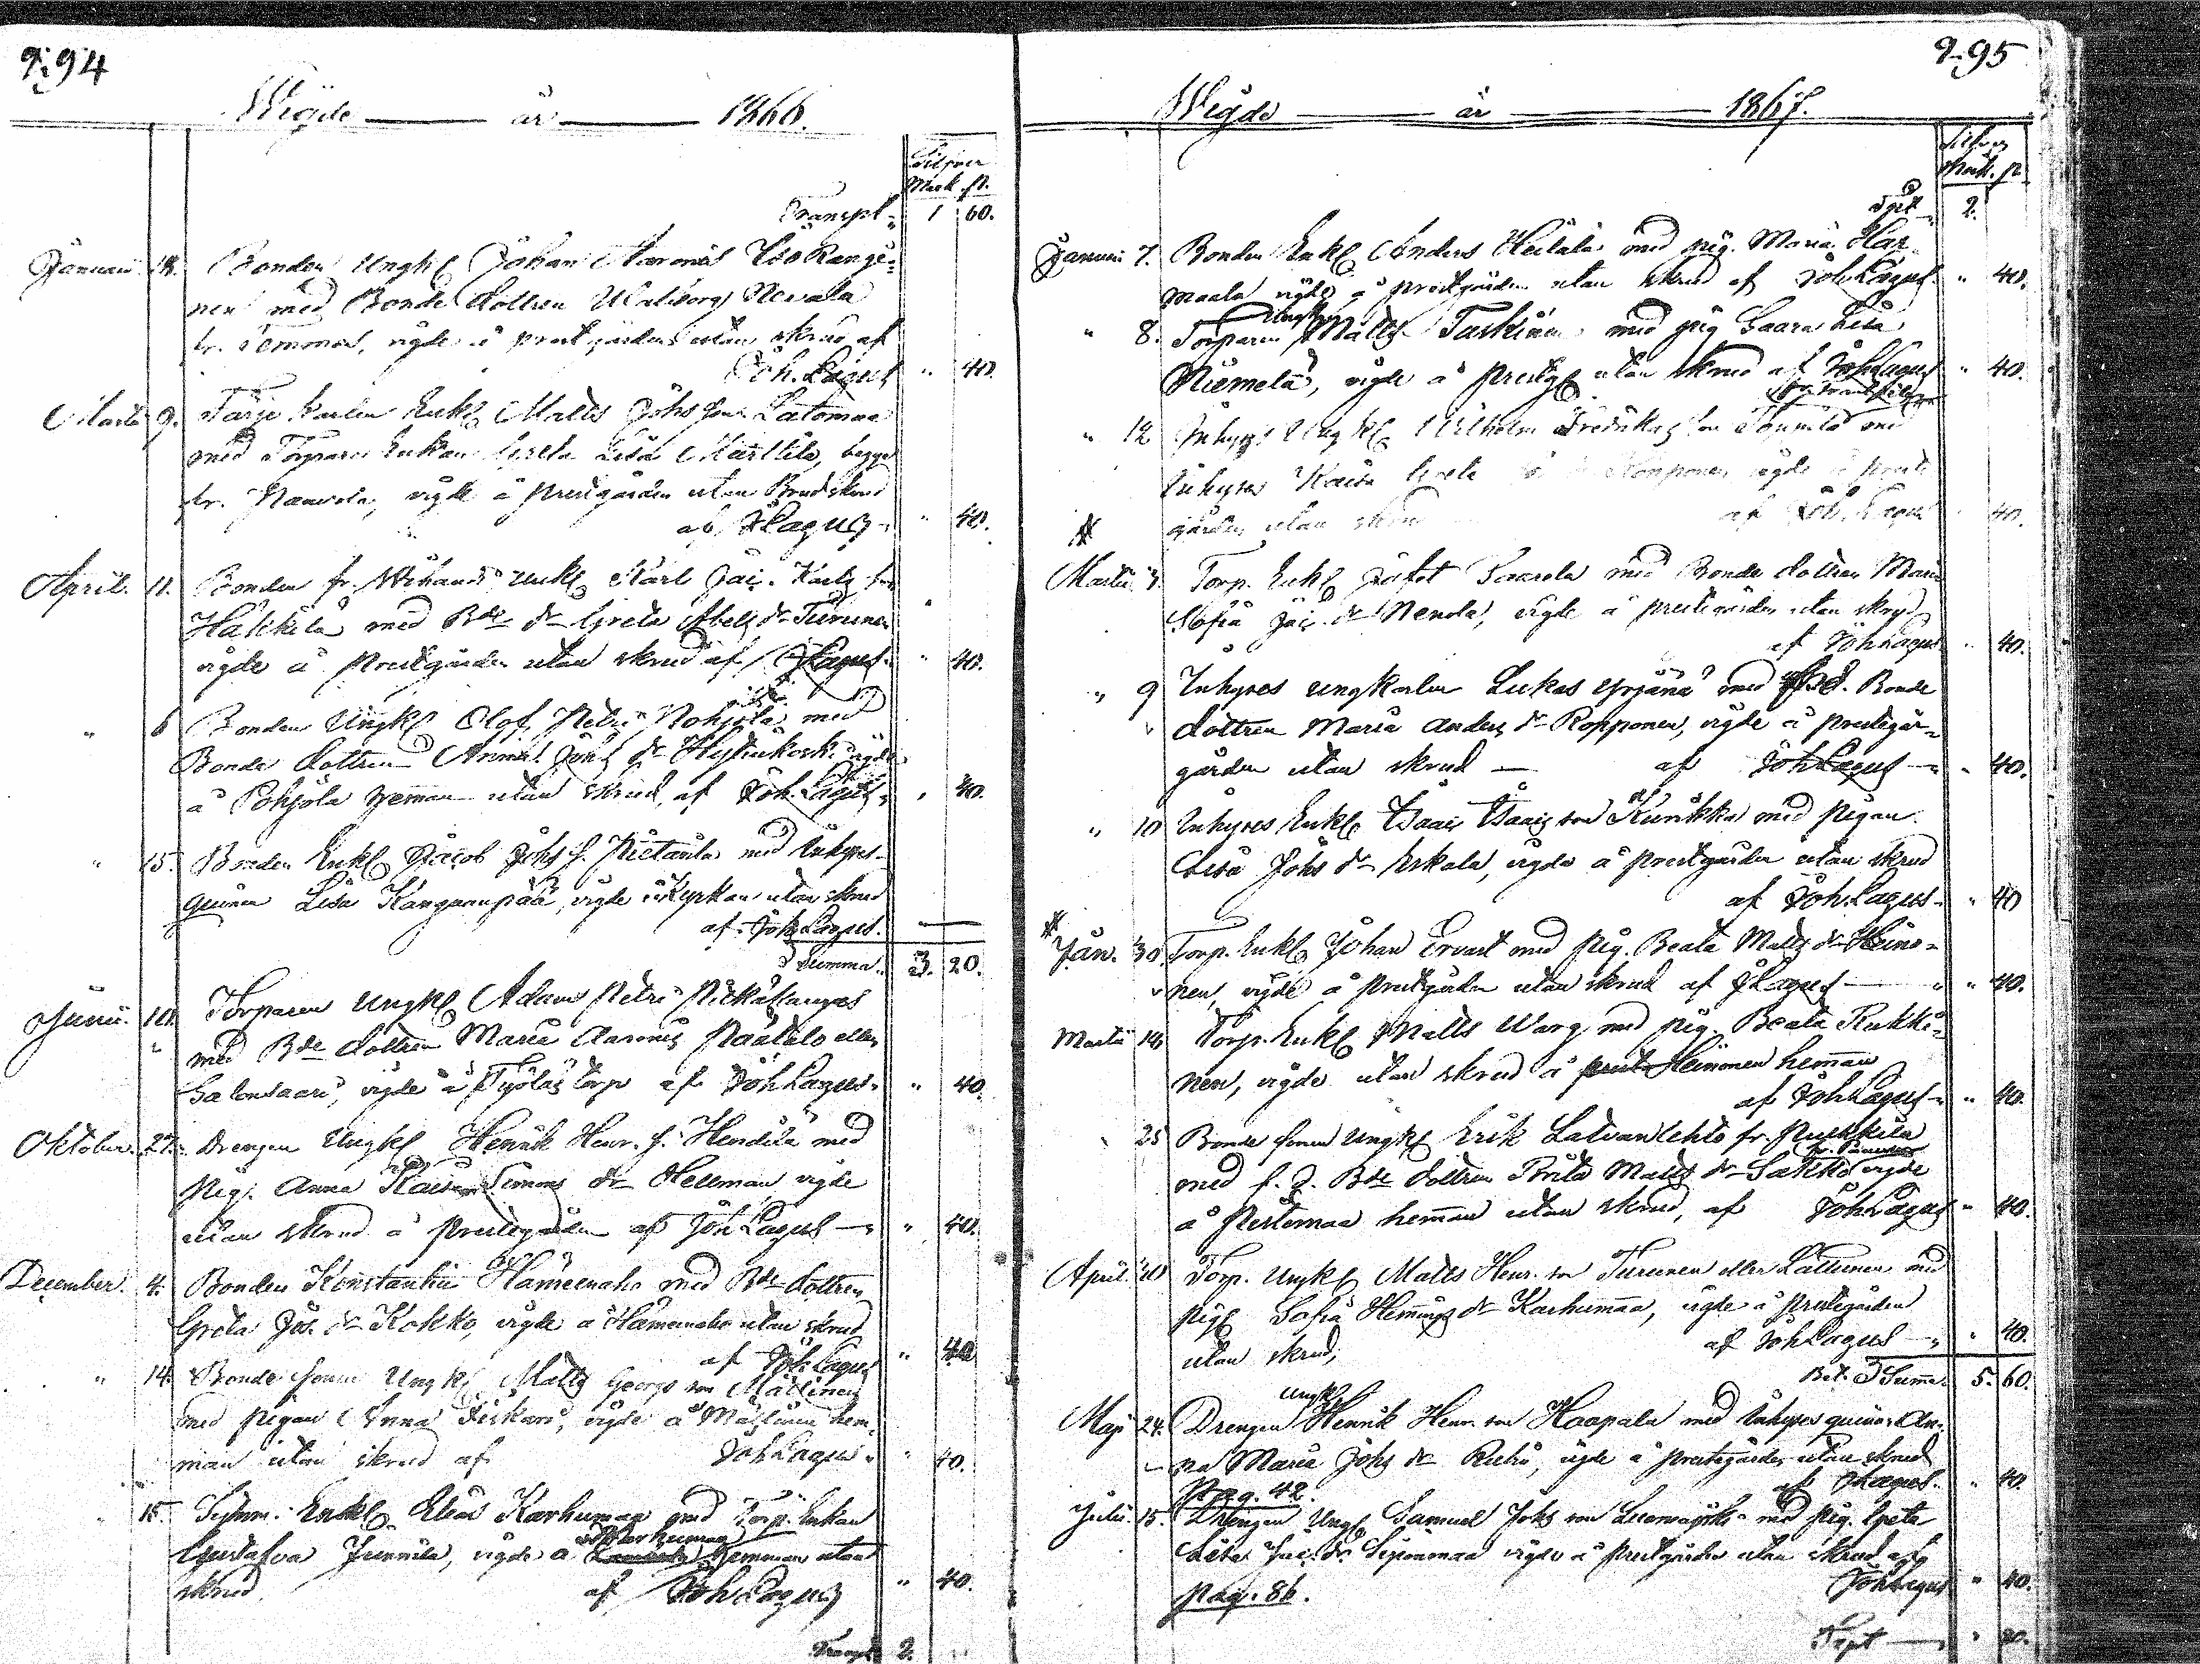 294
Wigde år 1866.
Silfver
Mark. p.
Transpt 1 60.
Januari 14. Bonden Ungkl Johan Aaronss Iso Rangi-
nen med Bonde dottren Walborg Nevala
fr. Temmes, vigde å prestgården utan skrud af
Joh. Lagus " 40.
Martii 9. Färje karlen Enkl Matts Johs son Latomaa
med Torpare Enkan Greta Lisa Marttila, begge
fr. vigde å prestgården utan Brudskrud
af JLagus " 40.
April. 11. Bonden fr. Wihanti Enkl Karl Jac. Karls son
Hakkila med Bde dr Greta Abels dr Turunen
vigde å prestgården utan skrud af JLagus " 40.
" 6 Bonden Ungkl Olof Petri Pohjola med
Bonde dottren Anna Johs dr vigde
å Pohjola hemman utan skrud, af Joh. Lagus " 40.
" 15. Bonden Enkl Jacob Johs s. Pietarila med Inhyses-
quinnan Lisa Kangaanpää, vigde i Kyrkan utan skrud
af Joh Lagus. —
Summa. 3. 20.
Junii. 10. Torparen Ungkl Adam Petri Pitkäkangas
med Bde dottren Maria Aarons Päätalo eller
Salonsaari, vigde å Työläs torp af JohLagus. " 40.
Oktober. 27. Drengen Ungkl Henrik Henr. s. Hendilä med
Pig. Anna Kaisa Simons dr Hellman vigde
utan skrud å prestegården af Joh Lagus " 40.
December. 4. Bonden Konstantin Hämeenaho med Bde dottren
Greta Jos. dr Kokko, vigde å Hämeenaho utan skrud
af Joh Lagus " 40
" 14. Bonde sonen Ungkl Matts Georgs son Mattinen
med pigan Anna Piskari, vigde å Mattinen hem-
man utan skrud af JohLagus " 40.
" 15. Enkl Elias Karhumaa med Torp. Enkan
Karhumaa
Gustafva Junnila, vigde å hemman utan
skrud af Joh Lagus " 40.
Transpt 2.
295
Wigde år 1867.
Silfver
Mark. p.
Tpt 2.
Januari 7. Bonden Enkl Anders Heikkilä med pig. Maria Har-
maala vigde å prestgården utan skrud af JohLagus " 40.
Ungkl
" 8. Torparen Matts Taskinen med pig Saara Lisa
Niemelä, vigde å prestg utan skrud af JohLagus " 40.
" 12 Inhyses Ungkl Wilhelm Fredriks son Tonnila med
Inhyses Kaisa Greta Komponen vigde å prest
gården utan skrud af Joh. Lagus " 40.
Martii 3. Torp. Enkl Jafet Saarela med Bonde dottren Maria
Sofia Jac. dr Nevala, vigde å prestgården utan skrud
af JohLagus " 40.
" 9 Inhyses ungkarlen Lukas Yrjänä med f.d. Bonde
dottren Maria Anders dr Ropponen, vigde å prestegår-
gården utan skrud — af JohLagus " 40.
" 10 Inhyses Enkl Isaac Isaacs son Kurikka med pigan
Lisa Johs dr Erkala, vigde å prestgården utan skrud
af JohLagus " 40
Jan. 30. Torp. Enkl Johan Ervast med pig. Beata Matts dr Heino-
nen, vigde å prestgården utan skrud af JLagus — " 40.
Martii 14 Torp. Enkl Matts Warg med pig. Beata Kukki-
nen, vigde utan skrud å Heinonen hemman
af JohLagus " 40.
" 25 Bonde sonen Ungkl Erik Latvanlehto fr. Puhkila
med f. d. Bde dottren Brita Matts dr Sakko vigde
å Pertemaa hemman utan skrud, af JohLagus " 40.
April. 20 Torp. Ungkl Matts Henr. son Turunen eller Lattunen med
pig Sofia Hemmings dr Karhumaa, vigde å prestegården
utan skrud, af JohLagus " 40.
Bet. Summa 5. 60.
ungkl
Maji 24. Drengen Henrik Henr. son Haapala med Inhyses quinan An-
na Maria Johs dr Riehi, vigde å prestegården utan skrud
Pag. 42. af JLagus. " 40.
Julii. 15. Drengen Ungkl Samuel Johs son med pig. Greta
Lisa Jac. dr vigde å prestgården utan skrud af
pag. 86. JohLagus " 40.
Tspt — " 80.